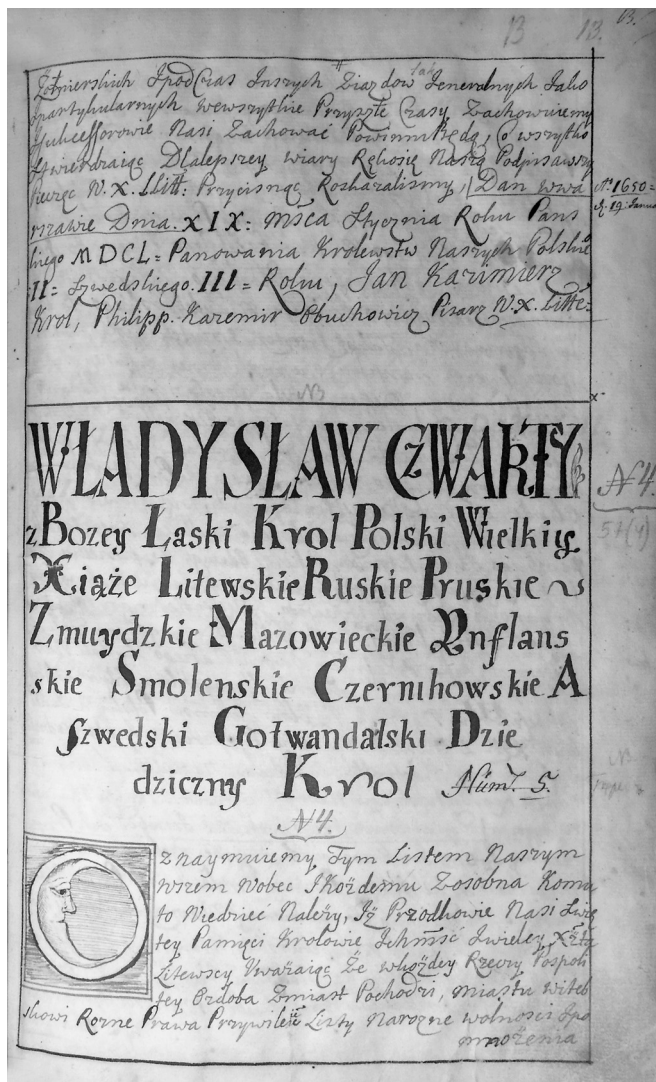 13 13. 13.
Żołnierskich Ipod Czas Inszych Ziazdow tak Ieneralnych Iako
Ipartykularnych wewszytkie Przyszłe Czasy Zachowuiemy
Isukcessorowie Nasi Zachować Powinni Będą, o wszytko
stwierdzaiąc Dlalepszey wiary Rękosię Naszą Podpisawszy
Pieczęc W. X. Littt: Przycisnąc Roskazalismy, Dan wwa
rszawie Dnia. XIX: Msca Stycznia Roku Pans
kiego MDCL = Panowania Krolewstw Naszych Polskie
II = Szwedskiego. III = Roku, Jan Kazimierz
Krol, Philipp. Kazemir Obuchowicz Pisarz W. X. Litte:
Aº 1650 =
d. 19. Januar
N3
WŁADYSŁAW CZWARTY
z Bozey Łaski Krol Polski Wielkiy
Xiąże Litewskie Ruskie Pruskie ~
Zmuydzkie Mazowieckie Ynflans
skie Smolenskie Czernihowskie A
Szwedski Gotwandalski Dzie
dziczny Krol Num. 5.
N4.
N4.
57(4)
Oznaymuiemy Tym Listem Naszym
wszem wobec Ikożdemu Zosobna Komu
to Wiedzieć Należy, Iż Przodkowie Nasi Swię
tey Pamięci Krolowie Ichmść Iwielcy Xżta
Litewscy Uważaiąc Że wkożdey Rzeczy Pospoli
tey Ozdoba Zmiast Pochodzi, Miastu witeb
skowi Rozne Prawa Przywileie Listy Narozne wolnosci Ipo
mnożenia